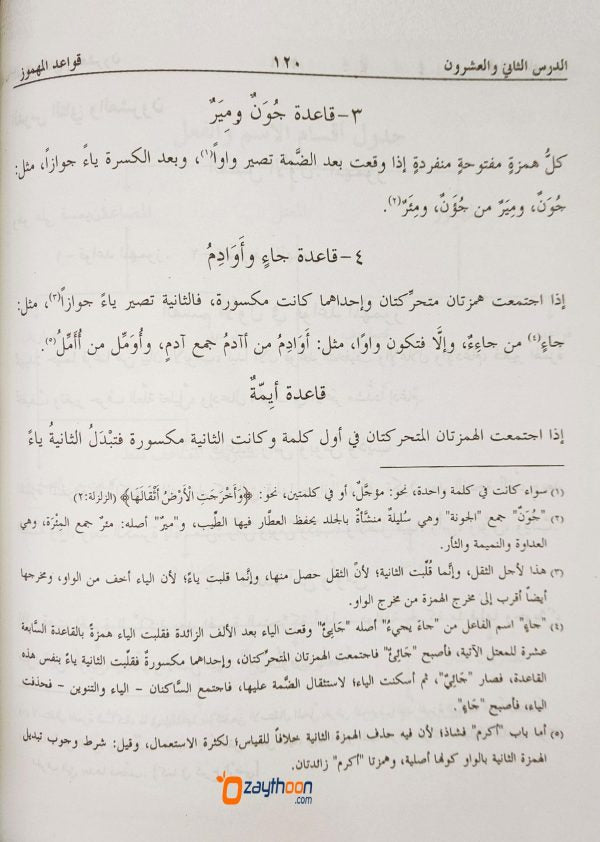 الدرس الثاني والعشرون ١٢٠ قواعد المهموز
٣- قاعدة جُوَنٌ ومِيَرٌ
كلُّ همزةٍ مفتوحةٍ منفردةٍ إذا وقعت بعد الضَّمة تصير واواً(١)، وبعد الكسرة ياءً جوازاً، مثل:
جُوَنٌ، ومِيَرٌ من جُؤَنٌ، ومِئَرٌ(٢).
٤- قاعدة جاءٍ وأَوَادِمُ
إذا اجتمعت همزتان متحرِّكتان وإحداهما كانت مكسورة، فالثانية تصير ياءً جوازاً(٣)، مثل:
جاءٍ(٤) من جاءِءٌ، وإلَّا فتكون واوًا، مثل: أَوَادِمُ من أَآدمُ جمع آدمٍ، وأُوَمِّل من أُأَمِّلُ(٥).
قاعدة أَيِمّةٌ
إذا اجتمعت الهمزتان المتحركتان في أول كلمة وكانت الثانية مكسورة فتبْدَلُ الثانيةُ ياءً
(١) سواء كانت في كلمة واحدة، نحو: مؤجَّلٌ، أو في كلمتين، نحو: ﴿وَأَخْرَجَتِ الْأَرْضُ أَثْقَالَهَا﴾ (الزلزلة:٢)
(٢) "جُوَنٌ" جمع "الجونة" وهي سُليلةٌ منشَّاةٌ بالجلد يحفظ العطّار فيها الطِّيب، و"مير" أصله: مئرٌ جمع المِئْرَة، وهي
العداوة والنميمة والثأر.
(٣) هذا لأجل الثقل، وإنَّما قُلِّبت الثانية؛ لأنّ الثقل حصل منها، وإنَّما قلبت ياءً؛ لأن الياء أخف من الواو، ومخرجها
أيضاً أقرب إلى مخرج الهمزة من مخرج الواو.
(٤) "جاءٍ" اسم الفاعل من "جاءَ يجيءُ" أصله "جَايِئٌ" وقعت الياء بعد الألف الزائدة فقلبت الياء همزةً بالقاعدة السَّابعة
عشرة للمعتل الآتية، فأصبح "جَائِئٌ" فاجتمعت الهمزتان المتحرِّكتان، وإحداهما مكسورةٌ فقلِّبت الثانية ياءً بنفس هذه
القاعدة، فصار "جَائِيٌ"، ثم أسكنت الياء؛ لاستثقال الضمَّة عليها، فاجتمع السَّاكنان - الياء والتنوين - فحذفت
الياء، فأصبح "جَاءٍ".
(٥) أما باب "أكرم" فشاذ؛ لأن فيه حذف الهمزة الثانية خلافًا للقياس؛ لكثرة الاستعمال، وقيل: شرط وجوب تبديل
الهمزة الثانية بالواو كونها أصلية، وهمزتا "أكرم" زائدتان.
zaythoon
.com